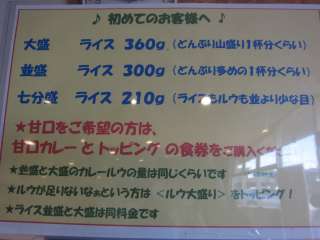 ♪ 初めてのお客様へ ♪
大盛 ライス 360g (どんぶり山盛り1杯分くらい)
並盛 ライス 300g (どんぶり多めの1杯分くらい)
七分盛 ライス 210g (ライスもルウも並より少な目)
★甘口をご希望の方は、
甘口カレーとトッピングの食券をご購入くだ
★並盛と大盛のカレールウの量は同じくらいです
★ルウが足りないなぁという方は <ルウ大盛り> をトッピング!
★ライス並盛と大盛は同料金です